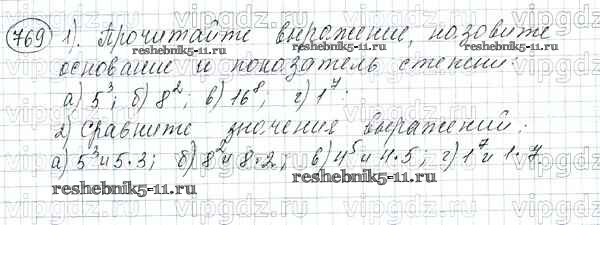 769 1). Прочитайте выражение, назовите
основание и показатель степени:
а) 5³; б) 8²; в) 16⁸; г) 1⁷.
2) Сравните значения выражений:
а) 5³ и 5·3; б) 8² и 8·2; в) 4⁵ и 4·5; г) 1⁷ и 1·7.
reshebnik5-11.ru
reshebnik5-11.ru
reshebnik5-11.ru
reshebnik5-11.ru
vipgdz.ru